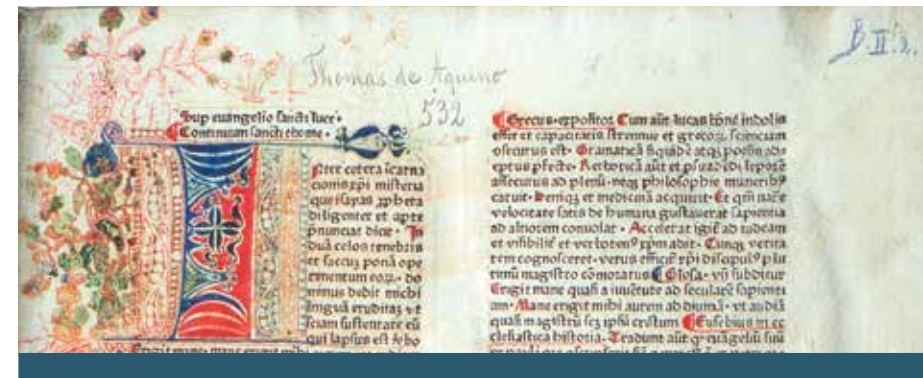 Thomas de Aquino
532
B. II. 2.
Sup euangelio sancti luce
Continuum sancti thome ·
Iter cetera īcarna
cionis xp̄i misteria
que ysayas ꝓpheta
diligenter et apte
pnunciat dicit · In
duā celos tenebris
et saccū ponā ope
rimentum eoꝝ · do
minus dedit michi
linguā eruditaꝫ vt
sciam sustentare eū
qui lapsus est ⁊c ho
Grecus · expositor Cum aūt lucas bōne indolis
esset et capacitatis strennue et grecoꝝ scienciam
assecutus est · Gramaticā siquidē atqꝫ poesim ad
eptus pfecte · Rethoricā aūt et
assecutus ad plenū · neqꝫ philosophie muneribꝰ
caruit · Deniqꝫ et medicinā acquirit · Et qm̄
velocitate satis de humana gustauerat sapientia
ad altiorem conuolat · Accelerat igit̄ ad iudeam
et visibilit̄ et xp̄m adit · Cunqꝫ verita
tem cognosceret · verus efficit̄ xp̄i discipulꝰ plu
rimū magistro cōmoratus Glosa · vn̄ subditur
Erigit mane quasi a iuuētute ad secularē sapienti
am · Mane erigit mihi aurem ad diuinā · vt audiā
quasi magistrū scꝫ ipsū cristum Eusebius in ec
clesiastica historia · Tradunt aūt qꝫ euāgeliū suū